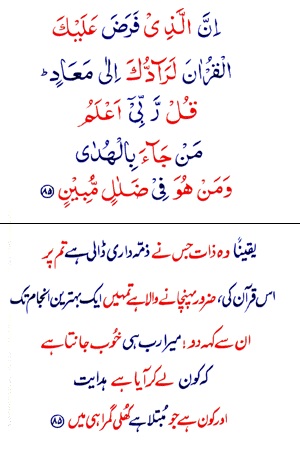 اِنَّ الَّذِیْ فَرَضَ عَلَیْكَ
الْقُرْاٰنَ لَرَآدُّكَ اِلٰی مَعَادٍ ؕ
قُلْ رَّبِّیْۤ اَعْلَمُ
مَنْ جَآءَ بِالْهُدٰی
وَمَنْ هُوَ فِیْ ضَلٰلٍ مُّبِیْنٍ ﴿۸۵﴾
یقیناً وہ ذات جس نے ذمّہ داری ڈالی ہے تم پر
اس قرآن کی، ضرور پہنچانے والا ہے تمہیں ایک بہترین انجام تک
ان سے کہہ دو! میرا رب ہی خُوب جانتا ہے
کہ کون لے کر آیا ہے ہدایت
اور کون ہے جو مُبتلا ہے کُھلی گمراہی میں ﴿۸۵﴾